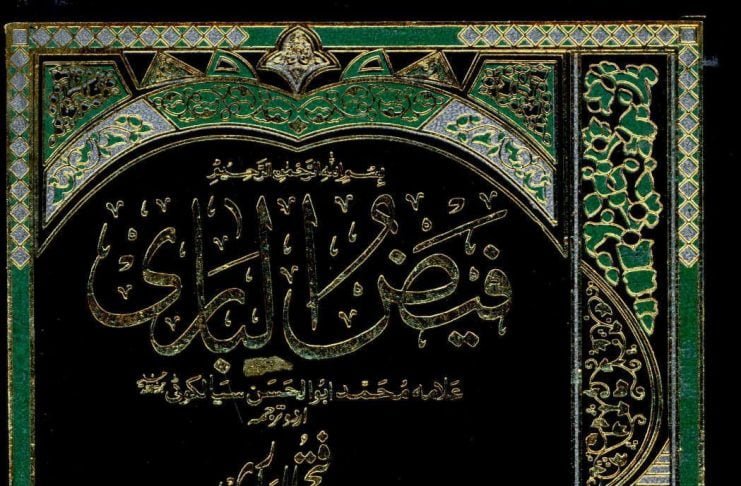 بسم الله الرحمن الرحيم
فیض الباری
علامه محمد ابوالحسن سیالکوٹی
اردو ترجمہ
فتح الباری